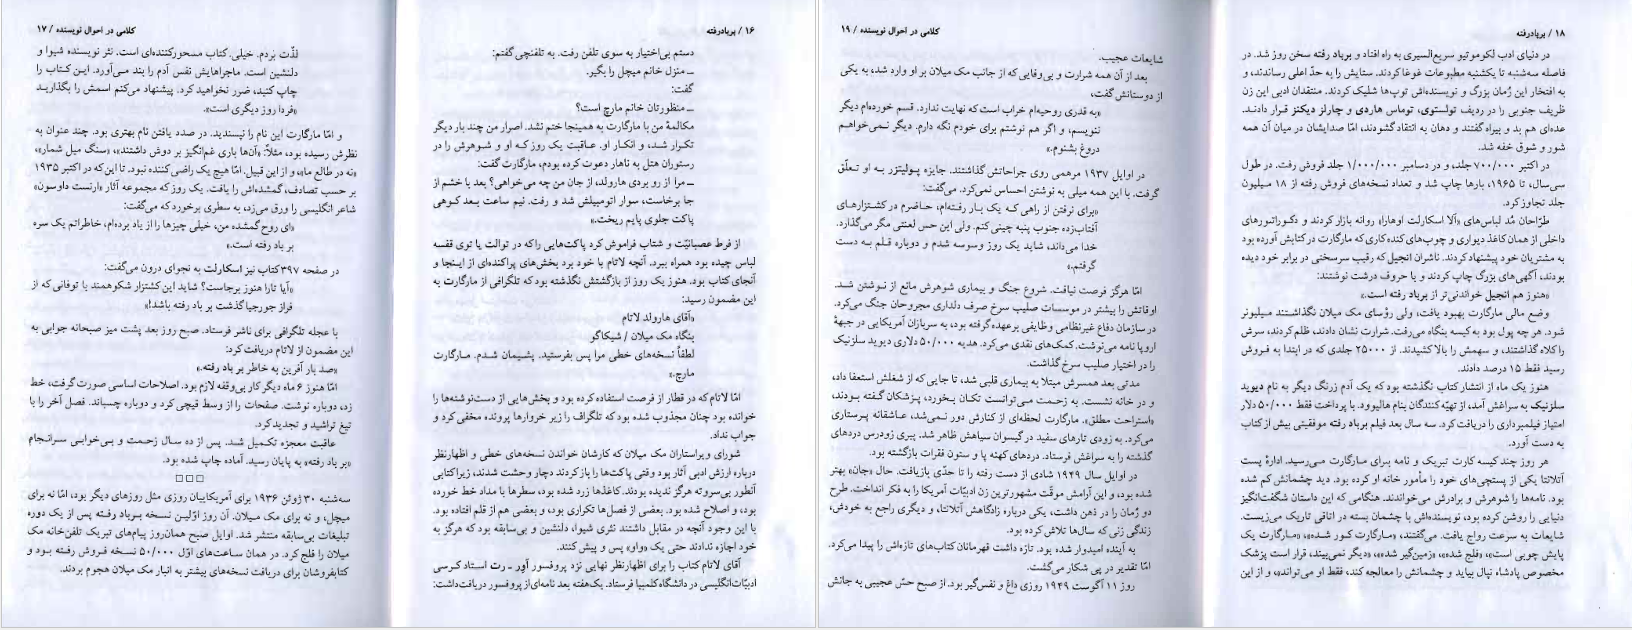 ۱۶ / بربادرفته
دستم بی‌اختیار به سوی تلفن رفت. به تلفنچی گفتم:
ــ منزل خانم میچل را بگیر.
گفت:
ــ منظورتان خانم مارچ است؟
مکالمهٔ من با مارگارت به همینجا ختم نشد. اصرار من چند بار دیگر
تکرار شد، و انکار او. عاقبت یک روز که او و شوهرش را در
رستوران هتل به ناهار دعوت کرده بودم، مارگارت گفت:
ــ مرا از رو بردی هارولد، از جان من چه می‌خواهی؟ بعد با خشم از
جا برخاست، سوار اتومبیلش شد و رفت. نیم ساعت بعد کوهی
پاکت جلوی پایم ریخت.»
از فرط عصبانیّت و شتاب فراموش کرد پاکت‌هایی را که در توالت یا توی قفسه
لباس چیده بود همراه ببرد. آنچه لاتام با خود برد بخش‌های پراکنده‌ای از اینجا و
آنجای کتاب بود. هنوز یک روز از بازگشتش نگذشته بود که تلگرافی از مارگارت به
این مضمون رسید:
«آقای هارولد لاتام
بنگاه مک میلان / شیکاگو
لطفاً نسخه‌های خطی مرا پس بفرستید. پشیمان شدم. مارگارت
مارچ.»
امّا لاتام که در قطار از فرصت استفاده کرده بود و بخش‌هایی از دست‌نوشته‌ها را
خوانده بود چنان مجذوب شده بود که تلگراف را زیر خروارها پرونده مخفی کرد و
جواب نداد.
شورای ویراستاران مک میلان که کارشان خواندن نسخه‌های خطی و اظهارنظر
درباره ارزش ادبی آثار بود وقتی پاکت‌ها را باز کردند دچار وحشت شدند، زیرا کتابی
آنطور بی‌سروته هرگز ندیده بودند. کاغذها زرد شده بود، سطرها با مداد خط خورده
بود، و اصلاح شده بود. بعضی از فصل‌ها تکراری بود، و بعضی هم از قلم افتاده بود.
با این وجود آنچه در مقابل داشتند نثری شیوا، دلنشین و بی‌سابقه بود که هرگز به
خود اجازه ندادند حتی یک «واو» پس و پیش کنند.
آقای لاتام کتاب را برای اظهارنظر نهایی نزد پروفسور آوِر ــ رت استاد کرسی
ادبیّات انگلیسی در دانشگاه کلمبیا فرستاد. یک هفته بعد نامه‌ای از پروفسور دریافت داشت:
کلامی در احوال نویسنده / ۱۷
لذّت بردم. خیلی کتاب مسحورکننده‌ای است. نثر نویسنده شیوا و
دلنشین است. ماجراهایش نفس آدم را بند می‌آورد. این کتاب را
چاپ کنید، ضرر نخواهید کرد. پیشنهاد می‌کنم اسمش را بگذارید
«فردا روز دیگری است».
و امّا مارگارت این نام را نپسندید. در صدد یافتن نام بهتری بود. چند عنوان به
نظرش رسیده بود، مثلاً: «آن‌ها باری غم‌انگیز بر دوش داشتند»، «سنگ میل شمار»،
«نه در طالع ما»، و از این قبیل. امّا هیچ یک راضی کننده نبود. تا این که در اکتبر ۱۹۳۵
بر حسب تصادف، گمشده‌اش را یافت. یک روز که مجموعه آثار «ارنست داوسون»
شاعر انگلیسی را ورق می‌زد، به سطری برخورد که می‌گفت:
«ای روح گمشده من، خیلی چیزها را از یاد برده‌ام، خاطراتم یک سره
بر باد رفته است.»
در صفحه ۳۹۷ کتاب نیز اسکارلت به نجوای درون می‌گفت:
«آیا تارا هنوز برجاست؟ شاید این کشتزار شکوهمند با توفانی که از
فراز جورجیا گذشت بر باد رفته باشد!»
با عجله تلگرافی برای ناشر فرستاد. صبح روز بعد پشت میز صبحانه جوابی به
این مضمون از لاتام دریافت کرد:
«صد بار آفرین به خاطر بر باد رفته.»
امّا هنوز ۶ ماه دیگر کار بی‌وقفه لازم بود. اصلاحات اساسی صورت گرفت، خط
زد، دوباره نوشت. صفحات را از وسط قیچی کرد و دوباره چسباند. فصل آخر را با
تیغ تراشید و تجدید کرد.
عاقبت معجزه تکمیل شد. پس از ده سال زحمت و بی‌خوابی سرانجام
«بر باد رفته» به پایان رسید. آماده چاپ شده بود.
□□□
سه‌شنبه ۳۰ ژوئن ۱۹۳۶ برای آمریکاییان روزی مثل روزهای دیگر بود، امّا نه برای
میچل، و نه برای مک میلان. آن روز اوّلین نسخه بربادرفته پس از یک دوره
تبلیغات بی‌سابقه منتشر شد. اوایل صبح همان‌روز پیام‌های تبریک تلفن‌خانه مک
میلان را فلج کرد. در همان ساعت‌های اوّل ۵۰/۰۰۰ نسخه فروش رفته بود و
کتابفروشان برای دریافت نسخه‌های بیشتر به انبار مک میلان هجوم بردند.
۱۸ / بربادرفته
در دنیای ادب لکوموتیو سریع‌السیری به راه افتاد و برباد رفته سخن روز شد. در
فاصله سه‌شنبه تا یکشنبه مطبوعات غوغا کردند. ستایش را به حدّ اعلی رساندند، و
به افتخار این رُمان بزرگ و نویسنده‌اش توپ‌ها شلیک کردند. منتقدان ادبی این زن
ظریف جنوبی را در ردیف تولستوی، توماس هاردی و چارلز دیکنز قرار دادند.
عده‌ای هم بد و بیراه گفتند و دهان به انتقاد گشودند، امّا صدایشان در میان آن همه
شور و شوق خفه شد.
در اکتبر ۷۰۰/۰۰۰ جلد، و در دسامبر ۱/۰۰۰/۰۰۰ جلد فروش رفت. در طول
سی‌سال، تا ۱۹۶۵، بارها چاپ شد و تعداد نسخه‌های فروش رفته از ۱۸ میلیون
جلد تجاوز کرد.
طرّاحان مُد لباس‌های «اَلا اسکارلت اوهارا» روانه بازار کردند و دکوراتورهای
داخلی از همان کاغذ دیواری و چوب‌های کنده کاری که مارگارت در کتابش آورده بود
به مشتریان خود پیشنهاد کردند. ناشران انجیل که رقیب سرسختی در برابر خود دیده
بودند، آگهی‌های بزرگ چاپ کردند و با حروف درشت نوشتند:
«هنوز هم انجیل خواندنی‌تر از برباد رفته است.»
وضع مالی مارگارت بهبود یافت، ولی رؤسای مک میلان نگذاشتند میلیونر
شود. هر چه پول بود به کیسه بنگاه می‌رفت. شرارت نشان دادند، ظلم کردند، سرش
را کلاه گذاشتند، و سهمش را بالا کشیدند. از ۲۵۰۰۰ جلدی که در ابتدا به فروش
رسید فقط ۱۵ درصد دادند.
هنوز یک ماه از انتشار کتاب نگذشته بود که یک آدم زرنگ دیگر به نام دیوید
سلزنیک به سراغش آمد، از تهیّه کنندگان بنام هالیوود. با پرداخت فقط ۵۰/۰۰۰ دلار
امتیاز فیلمبرداری را دریافت کرد. سه سال بعد فیلم برباد رفته موفقیتی بیش از کتاب
به دست آورد.
هر روز چند کیسه کارت تبریک و نامه برای مارگارت می‌رسید. ادارهٔ پست
آتلانتا یکی از پستچی‌های خود را مأمور خانه او کرده بود. دید چشمانش کم شده
بود. نامه‌ها را شوهرش و برادرش می‌خواندند. هنگامی که این داستان شگفت‌انگیز
دنیایی را روشن کرده بود، نویسنده‌اش با چشمان بسته در اتاقی تاریک می‌زیست.
شایعات به سرعت رواج یافت. می‌گفتند، «مارگارت کور شده»، «مارگارت یک
پایش چوبی است»، «فلج شده»، «زمین‌گیر شده»، «دیگر نمی‌بیند، قرار است پزشک
مخصوص پادشاه نپال بیاید و چشمانش را معالجه کند، فقط او می‌تواند»، و از این
کلامی در احوال نویسنده / ۱۹
شایعات عجیب.
بعد از آن همه شرارت و بی‌وفایی که از جانب مک میلان بر او وارد شد، به یکی
از دوستانش گفت،
«به قدری روحیه‌ام خراب است که نهایت ندارد. قسم خورده‌ام دیگر
ننویسم، و اگر هم نوشتم برای خودم نگه دارم. دیگر نمی‌خواهم
دروغ بشنوم.»
در اوایل ۱۹۳۷ مرهمی روی جراحاتش گذاشتند. جایزه پولیتزر به او تعلّق
گرفت. با این همه میلی به نوشتن احساس نمی‌کرد. می‌گفت:
«برای نرفتن از راهی که یک بار رفته‌ام، حاضرم در کشتزارهای
آفتاب‌زده جنوب پنبه چینی کنم. ولی این حس لعنتی مگر می‌گذارد.
خدا می‌داند، شاید یک روز وسوسه شدم و دوباره قلم به دست
گرفتم.»
امّا هرگز فرصت نیافت. شروع جنگ و بیماری شوهرش مانع از نوشتن شد.
اوقاتش را بیشتر در موسسات صلیب سرخ صرف دلداری مجروحان جنگ می‌کرد.
در سازمان دفاع غیرنظامی وظایفی برعهده گرفته بود، به سربازان آمریکایی در جبههٔ
اروپا نامه می‌نوشت. کمک‌های نقدی می‌کرد. هدیه ۵۰/۰۰۰ دلاری دیوید سلزنیک
را در اختیار صلیب سرخ گذاشت.
مدتی بعد همسرش مبتلا به بیماری قلبی شد، تا جایی که از شغلش استعفا داد،
و در خانه نشست. به زحمت می‌توانست تکان بخورد، پزشکان گفته بودند،
«استراحت مطلق». مارگارت لحظه‌ای از کنارش دور نمی‌شد، عاشقانه پرستاری
می‌کرد. به زودی تارهای سفید در گیسوان سیاهش ظاهر شد. پیری زودرس دردهای
گذشته را به سراغش فرستاد. دردهای کهنه پا و ستون فقرات بازگشته بود.
در اوایل سال ۱۹۴۹ شادی از دست رفته را تا حدّی بازیافت. حال «جان» بهتر
شده بود، و این آرامش موقّت مشهورترین زن ادبیّات آمریکا را به فکر انداخت. طرح
دو رُمان را در ذهن داشت، یکی درباره زادگاهش آتلانتا، و دیگری راجع به خودش،
زندگی زنی که سال‌ها تلاش کرده بود.
به آینده امیدوار شده بود. تازه داشت قهرمانان کتاب‌های تازه‌اش را پیدا می‌کرد.
امّا تقدیر در پی شکار می‌گشت.
روز ۱۱ آگوست ۱۹۴۹ روزی داغ و نفس‌گیر بود. از صبح حسّ عجیبی به جانش